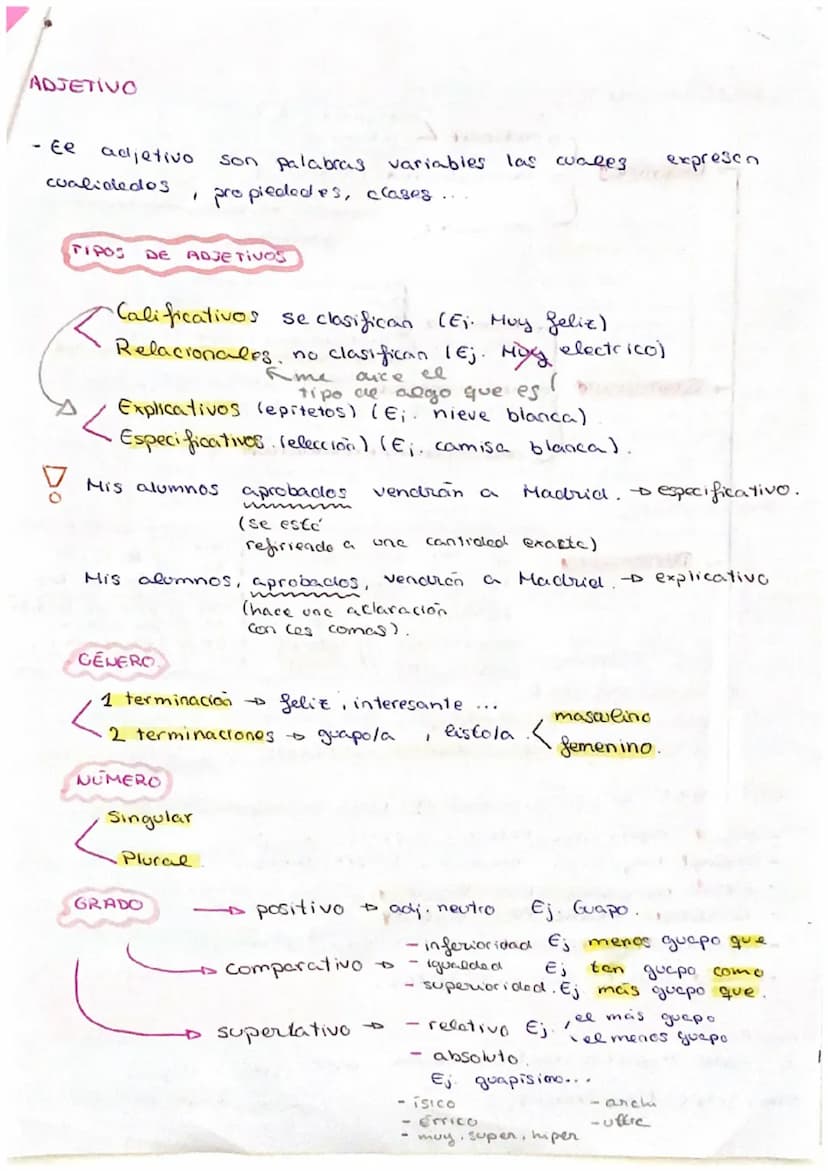 ADJETIVO
- El adjetivo son palabras variables las cuales expresan
cualidades, propiedades, clases...
TIPOS DE ADJETIVOS
Calificativos se clasifican (Ej. Muy feliz)
Relacionales, no clasifican (Ej. Muy electrico)
me dice el
tipo de algo que es
Explicativos (epítetos) (Ej. nieve blanca)
Especificativos. (elección) (Ej. camisa blanca).
Mis alumnos aprobados vendrán a Madrid. → especificativo.
(se está
refiriendo a una cantidad exacta)
Mis alumnos, aprobados, vendrán a Madrid. → explicativo
(hace una aclaración
con las comas).
GÉNERO
1 terminación → feliz, interesante ...
2 terminaciones → guapo/a, listo/a. masculino
femenino.
NÚMERO
Singular
Plural
GRADO → positivo → adj. neutro Ej. Guapo.
- inferioridad Ej menos guapo que
→ comparativo → - igualdad Ej tan guapo como
- superioridad. Ej más guapo que.
→ superlativo → - relativo Ej. el más guapo
el menos guapo
- absoluto.
Ej. guapísimo...
- ísico - archi
- érrico - ultra
- muy, super, hiper